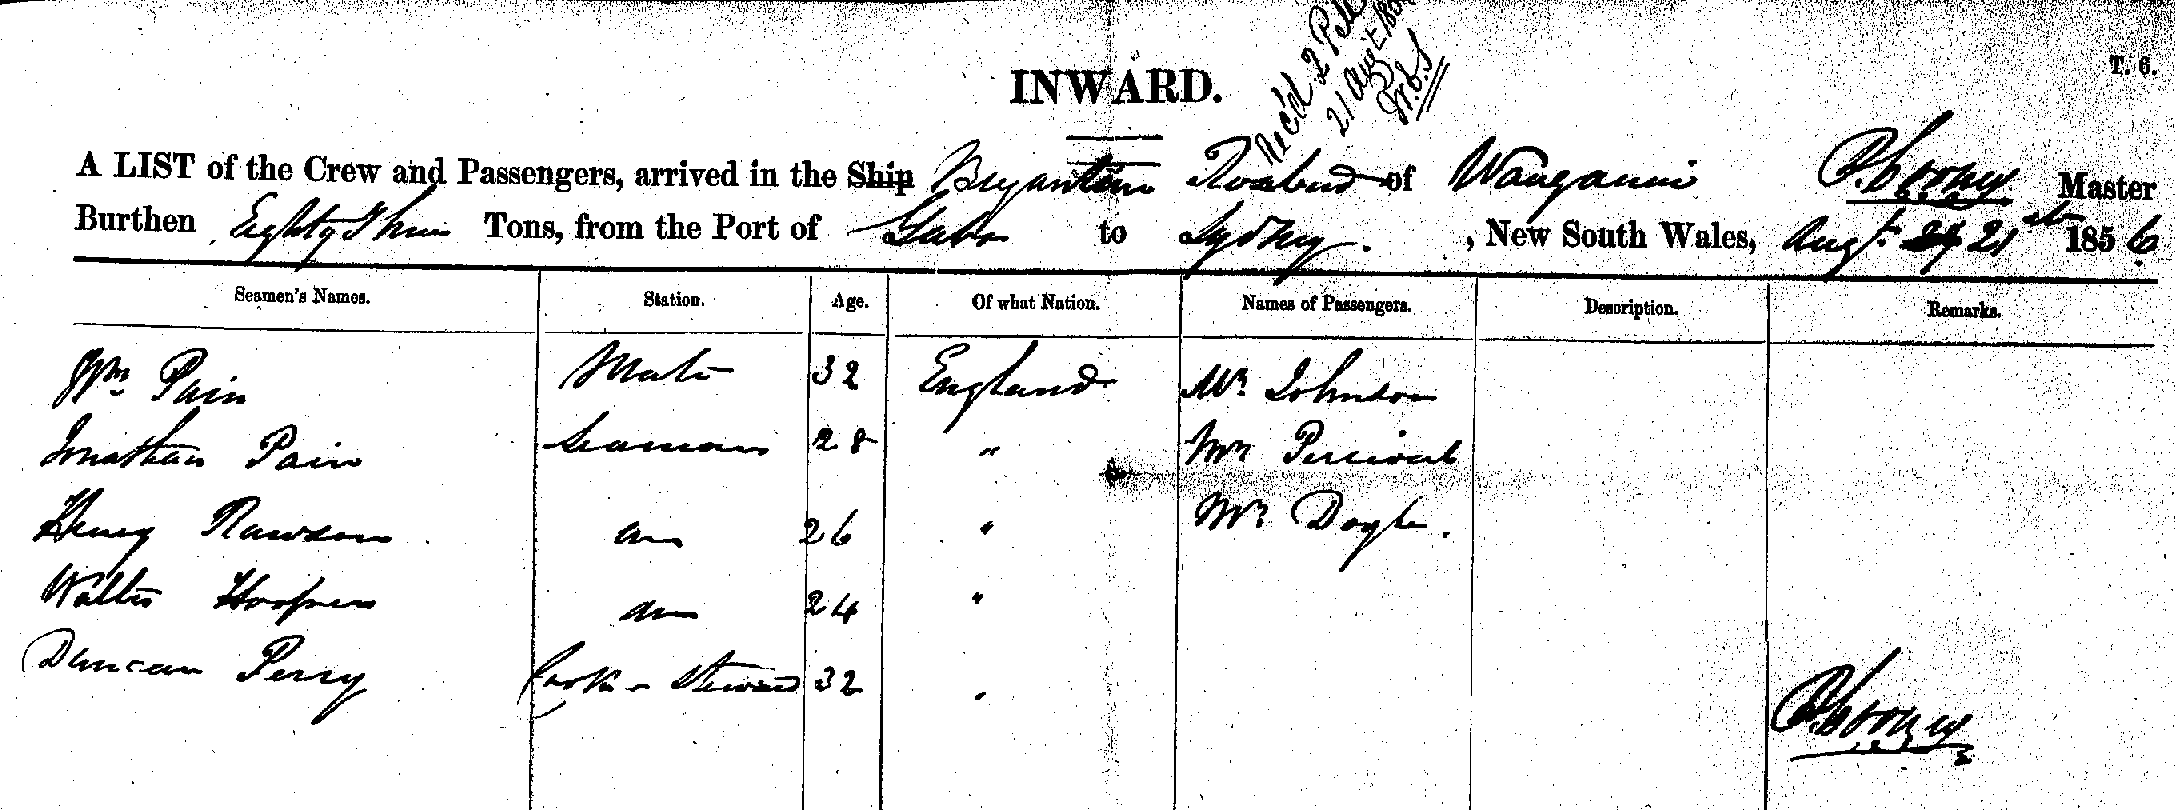 Rec'd 2
21 Augt
INWARD.
T. 6.
A LIST of the Crew and Passengers, arrived in the Ship Brigantine Rosebud of Wanganui Master
Burthen Eighty Three Tons, from the Port of to Sydney. , New South Wales, Augt. 21st 1856
Seamen's Names. Station. Age. Of what Nation. Names of Passengers. Description. Remarks.
Wm Pain Mate 32 England Mr Johnson
Jonathan Pain Seaman 28 " Mr Percival
Henry Rawson do 26 " Mr Doyle.
Walter Hooper do 24 "
Duncan Perry Cook & Steward 32 "